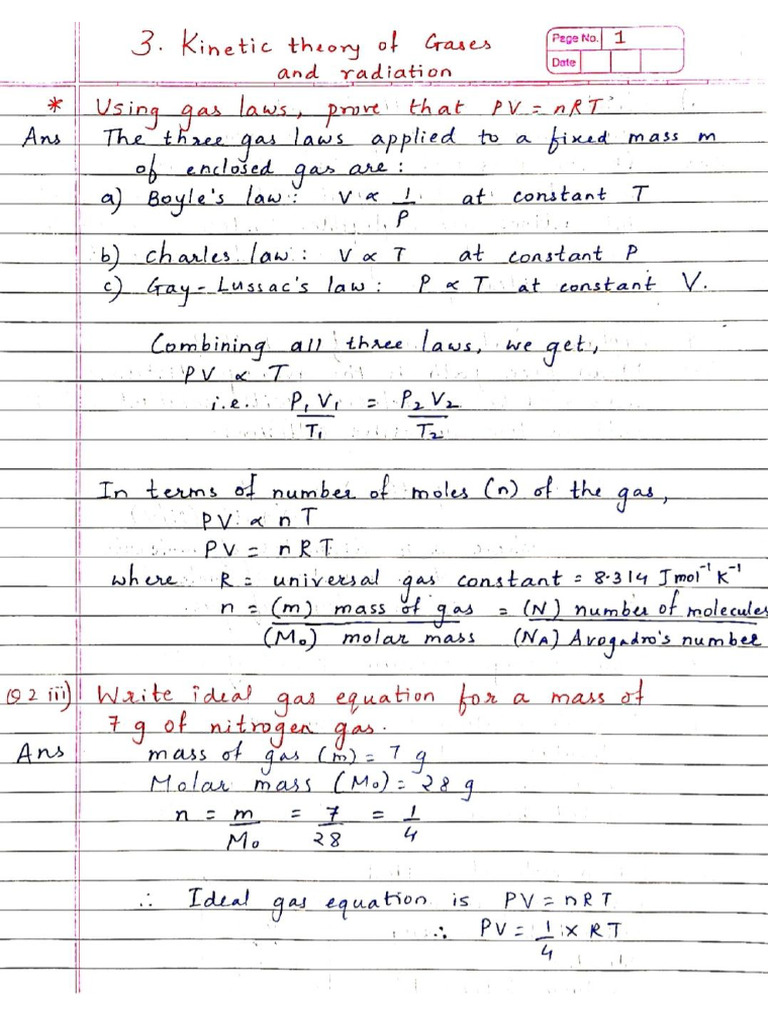 3. Kinetic theory of Gases
and radiation
Page No. 1
Date
* Using gas laws, prove that PV = nRT
Ans The three gas laws applied to a fixed mass m
of enclosed gas are :
a) Boyle's law : V ∝ 1/P at constant T
b) Charles law : V ∝ T at constant P
c) Gay-Lussac's law : P ∝ T at constant V.
Combining all three laws, we get,
PV ∝ T
i.e. P₁V₁/T₁ = P₂V₂/T₂
In terms of number of moles (n) of the gas,
PV ∝ nT
PV = nRT
where R = universal gas constant = 8.314 J mol⁻¹ K⁻¹
n = (m) mass of gas / (M₀) molar mass = (N) number of molecules / (NA) Avogadro's number
Q 2 iii) Write ideal gas equation for a mass of
7 g of nitrogen gas.
Ans mass of gas (m) = 7 g
Molar mass (M₀) = 28 g
n = m/M₀ = 7/28 = 1/4
∴ Ideal gas equation is PV = nRT
∴ PV = 1/4 × RT